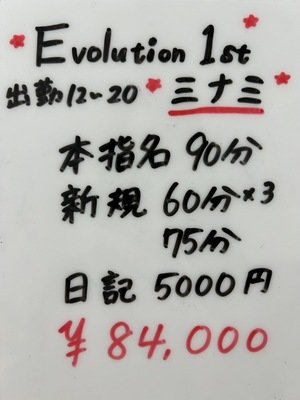 Evolution 1st
出勤12~20 ミナミ
本指名 90分
新規 60分×3
75分
日記 5000円
¥84,000